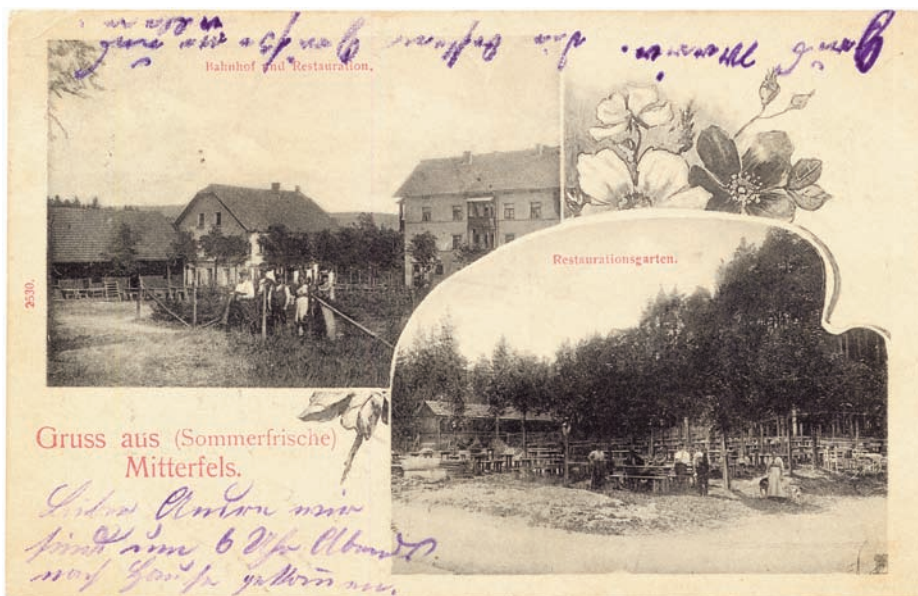 Bahnhof und Restauration.
Restaurationsgarten.
2630.
Gruss aus (Sommerfrische)
Mitterfels.
Lieber Andre wir
sind um 6 Uhr Abends
nach Hause gekommen.
die besten